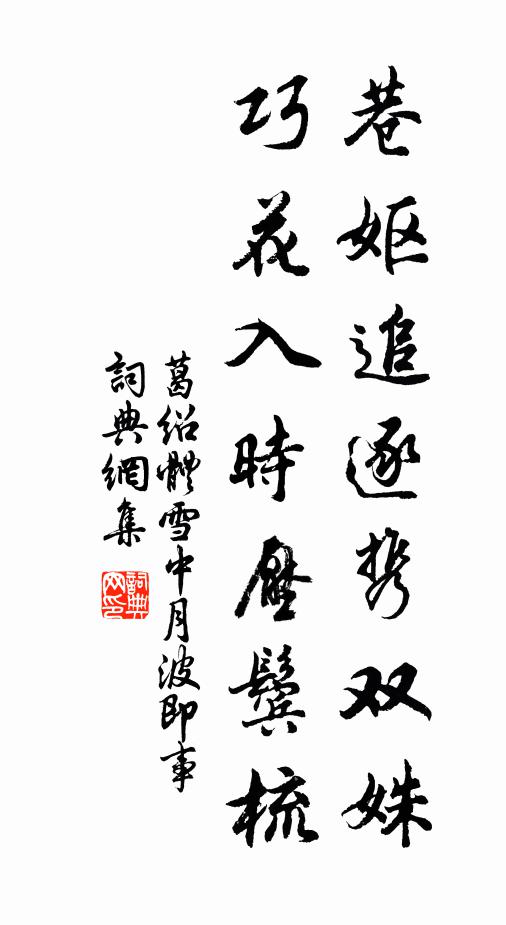 巷妪追逐携双姝
巧花入時壓鬓梳
葛绍體雪中月波即事
詞典網集
詞典网印